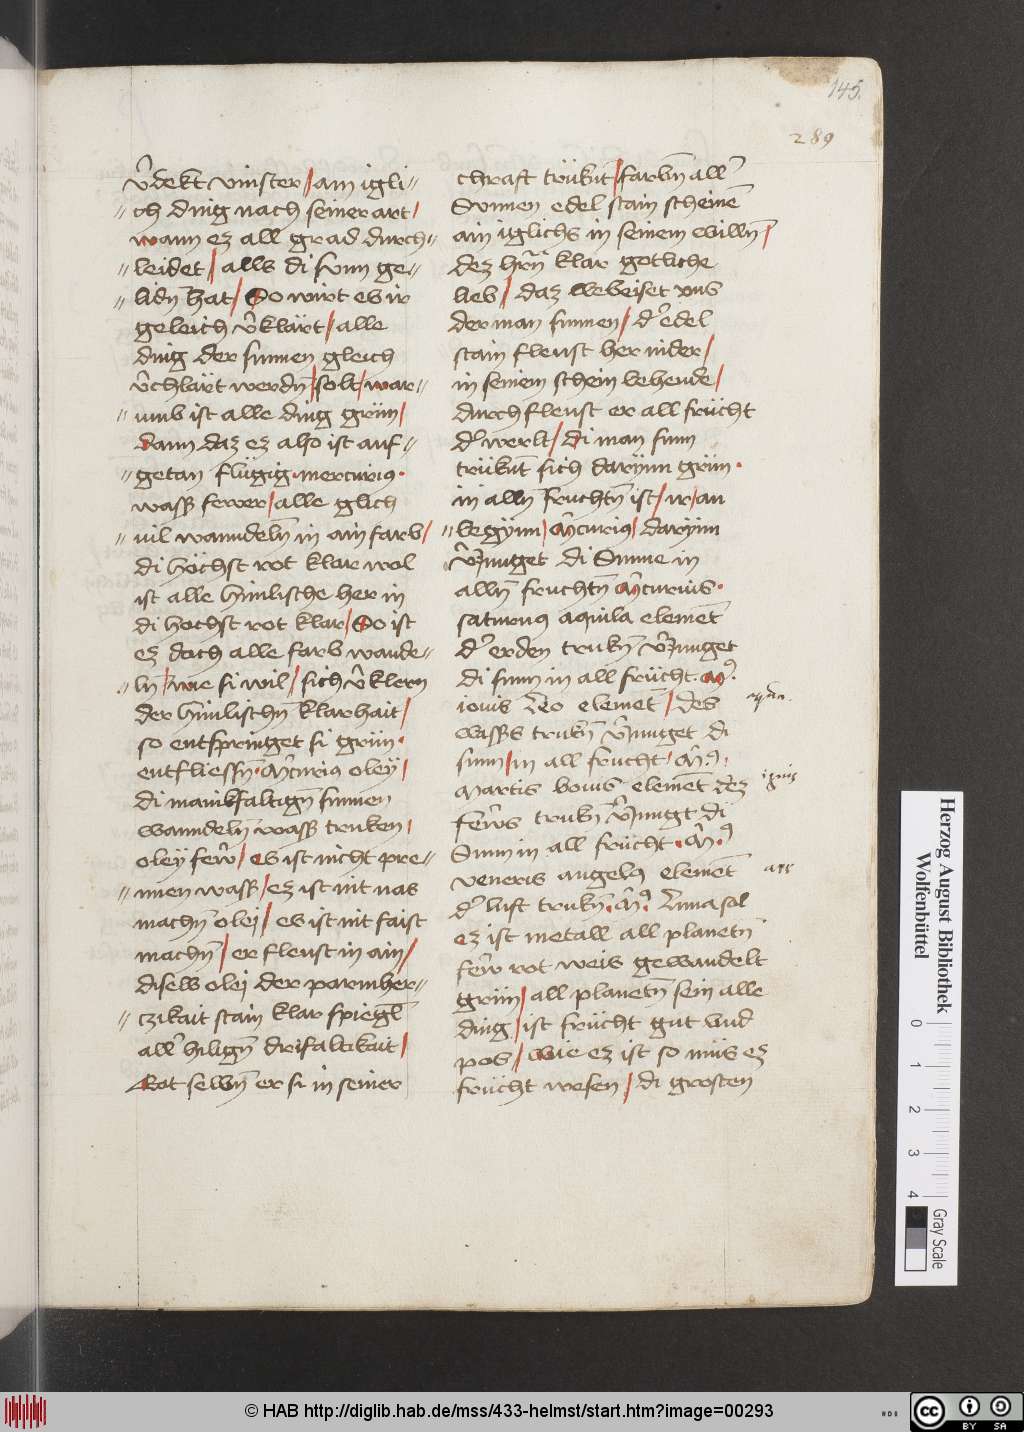 145.
289
v̂dekt vinster / ain igli〃
〃ch ding nach seiner art /
wann ez all grad durch〃
〃leidet / alls di sunn ge〃
〃lidn̄ hat / So wirt es ir
geleich v̂klärt / alle
ding der sunnen gleich
v̂chlärt werdn̄ / solt / war〃
〃umb ist alle ding grün /
dann daz ez also ist auf〃
〃getan flügig · mercurius ·
wasß fewer / alle glich
〃vil wanndeln̄ in ain farb /
di höchst rot klar wol
ist alle himlische her in
di hochst rot klar / So ist
ez doch alle farb wande〃
〃ln̄ / wie si wil / sich v̂klern
der himlischn̄ klarhait /
so entspringet si grün ·
entfliessn̄ · m̂curius oleÿ /
di manikfaltign̄ sinnen
wanndeln̄ wasß truken /
oleÿ few̄r / es ist nicht pre〃
〃nnen wasß / ez ist nit nas
machn̄ olei / es ist nit faist
machn̄ / er fleust in ain /
disels olei der parmher〃
〃czikait stain klar spiegl̄
all' hilign̄ drifaltikait /
Rot selbn̄ er si in seiner
chraft trükn̄t / farbn̄ all'
Sunnen edel stain scheinē
ain iglichs in seinem willn̄ /
dez hr̄n̄ klar gotliche
lieb / daz weweiset vns
der man sinnen / d' edel
stain fleust her nider /
in seinem schein behende /
durchfleust er all frücht
d' werlt / di man sinn
trükn̄t sich darynn grün ·
in alln̄ fruchtn̄ ist / ir / an
〃begynn / m̂curius / darynn
v̂junget di Sunne in
alln̄ fruchtn̄ m̂curius ·
saturnus aquila elemēt
d' erden trukn̄ v̂junget
di sunn in all frücht · m̂9 ·
iouis leo elemēt / des
wasßs trukn̄ v̂junget di
sunn / in all frucht / m̂9 ·
Martis bouis elemēt dez
few̄rs trukn̄ v̂jungt di
Sunn in all frücht · m̂ · 9
veneris angelus elemēt
d' luft trukn̄ · m̂9 · Luna sol
ez ist metall all planetn̄
few̄r rot weis gewandelt
grün / all planetn sein alle
ding / ist frücht gut vnd
pos / wie ez ist so müs ez
frücht wesen / di grosten
aqua.
ignis
aer
Herzog August Bibliothek
Wolfenbüttel
0 1 2 3 4
Gray Scale
© HAB http://diglib.hab.de/mss/433-helmst/start.htm?image=00293
HAB
cc BY SA